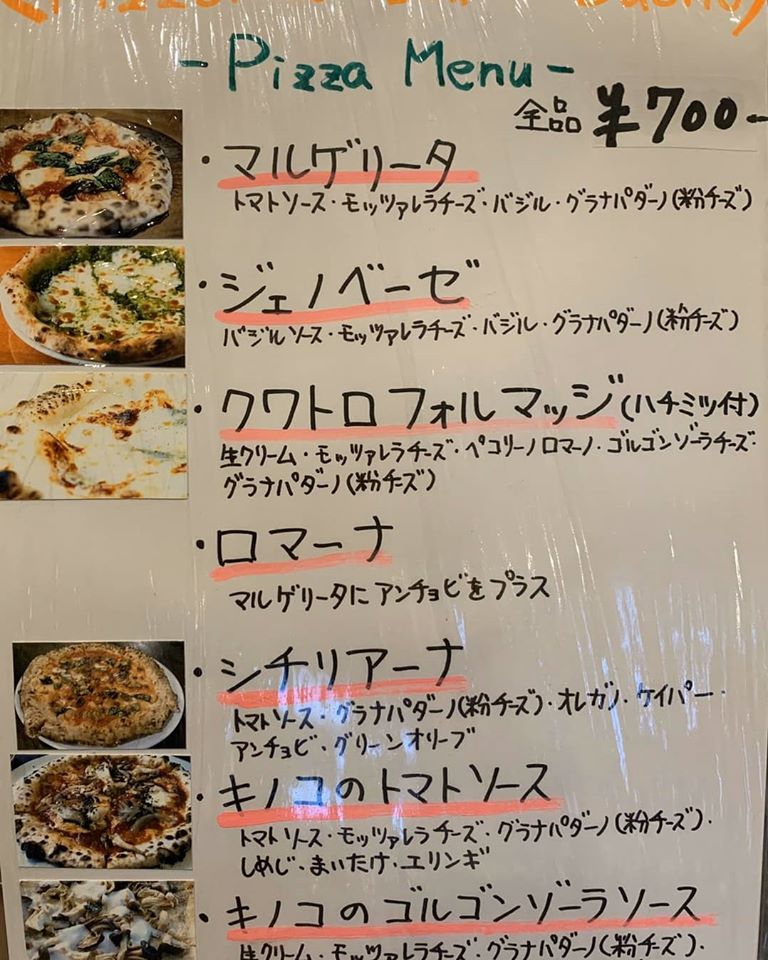 - Pizza Menu -
全品 ¥700-
・マルゲリータ
トマトソース・モッツァレラチーズ・バジル・グラナパダーノ(粉チーズ)
・ジェノベーゼ
バジルソース・モッツァレラチーズ・バジル・グラナパダーノ(粉チーズ)
・クワトロフォルマッジ(ハチミツ付)
生クリーム・モッツァレラチーズ・ペコリーノロマーノ・ゴルゴンゾーラチーズ・
グラナパダーノ(粉チーズ)
・ロマーナ
マルゲリータにアンチョビをプラス
・シチリアーナ
トマトソース・グラナパダーノ(粉チーズ)・オレガノ・ケイパー・
アンチョビ・グリーンオリーブ
・キノコのトマトソース
トマトソース・モッツァレラチーズ・グラナパダーノ(粉チーズ)・
しめじ・まいたけ・エリンギ
・キノコのゴルゴンゾーラソース
生クリーム・モッツァレラチーズ・グラナパダーノ(粉チーズ)・